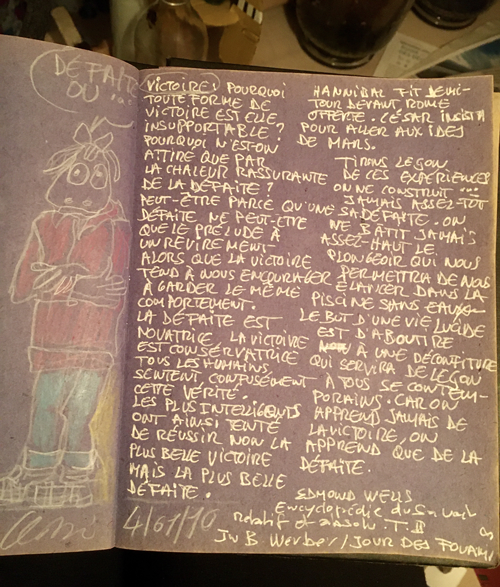 DÉFAITE
OU ...
VICTOIRE: POURQUOI
TOUTE FORME DE
VICTOIRE EST ELLE
INSUPPORTABLE?
POURQUOI N'EST-ON
ATTIRÉ QUE PAR
LA CHALEUR RASSURANTE
DE LA DÉFAITE?
PEUT-ÊTRE PARCE QU'UNE
DÉFAITE NE PEUT-ÊTRE
QUE LE PRÉLUDE À
UN REVIREMENT
ALORS QUE LA VICTOIRE
TEND À NOUS ENCOURAGER
À GARDER LE MÊME
COMPORTEMENT.
LA DÉFAITE EST
NOVATRICE LA VICTOIRE
EST CONSERVATRICE
TOUS LES HUMAINS
SENTENT CONFUSÉMENT
CETTE VÉRITÉ.
LES PLUS INTELLIGENTS
ONT AINSI TENTÉ
DE RÉUSSIR NON LA
PLUS BELLE VICTOIRE
MAIS LA PLUS BELLE
DÉFAITE.
HANNIBAL FIT DEMI-
TOUR DEVANT ROME
OFFERTE. CÉSAR INSISTA
POUR ALLER AUX IDES
DE MARS.
TIRONS LEÇON
DE CES EXPÉRIENCES
ON NE CONSTRUIT ...
JAMAIS ASSEZ-TÔT
SA DÉFAITE. ON
NE BÂTIT JAMAIS
ASSEZ-HAUT LE
PLONGEOIR QUI NOUS
PERMETTRA DE NOUS
ÉLANCER DANS LA
PISCINE SANS EAUX
LE BUT D'UNE VIE LUCIDE
EST D'ABOUTIRE
À UNE DÉCONFITURE
QUI SERVIRA DE LEÇON
À TOUS SE CONTEM-
PORAINS. CAR ON
APPREND JAMAIS DE
LA VICTOIRE, ON
APPREND QUE DE LA
DÉFAITE.
EDMOND WELLS
Encyclopédie du Savoir
relatif et absolu. T. II
In B Werber / JOUR DES FOURMIS
4/01/10